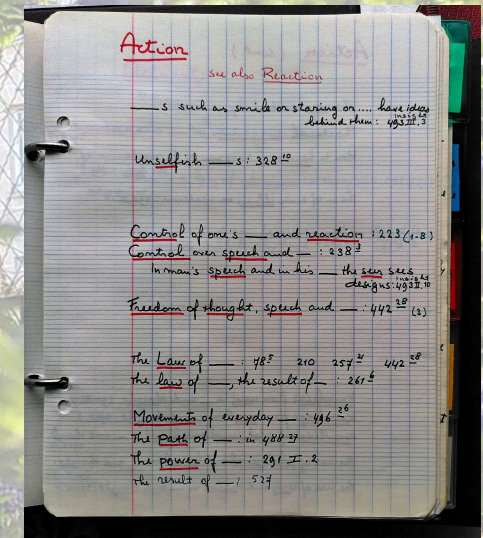 Action
see also Reaction
—s such as smile or staring or .... have ideas
insight
behind them: 493 III, 3
Unselfish —s : 328 10
Control of one's — and reaction : 223 (1-8)
Control over speech and — : 238 3
In man's speech and in his — the seer sees
insight
designs: 493 II, 10
Freedom of thought, speech and — : 442 28 (3)
The Law of — : 78 5 210 257 21 442 28
The law of —, the result of — : 261 6
Movements of everyday — : 496 26
The Path of — : in 488 27
The power of — : 291 I. 2
The result of — : 527